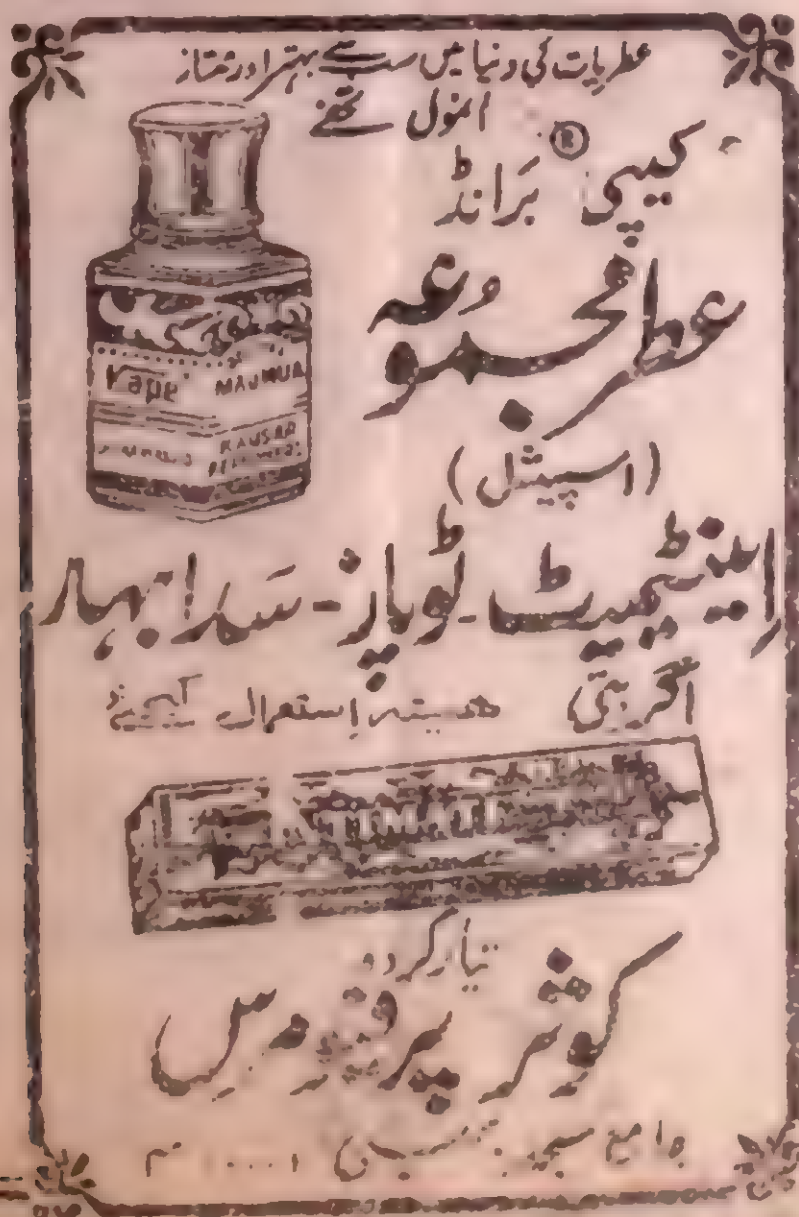 عطریات کی دنیا میں سب سے بہتر اور ممتاز
انمول تحفے
کیپی® برانڈ
عطر مجموعہ
(اسپیشل)
Kape MAJMUA
KAUSAR
اینٹیمیٹ - ٹوپاز - سَدا بہار
اگر بتی ھمیشہ اِستعمال کیجئے
تیار کردہ
کوثر پرفیومرس
جامع مسجد بمبئی